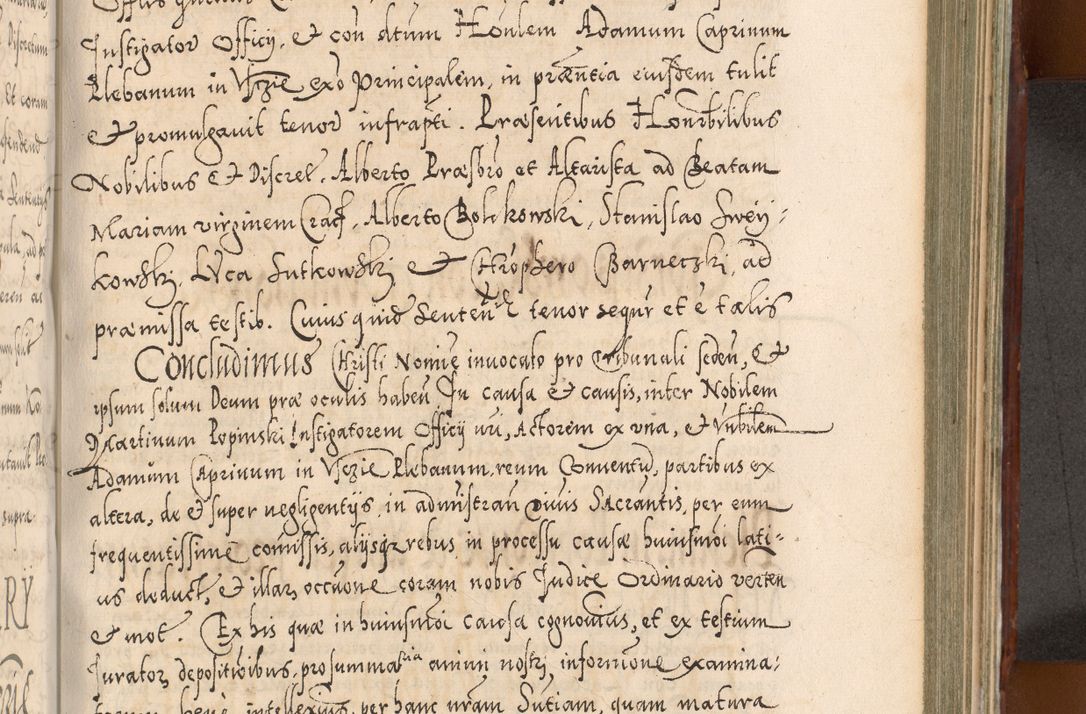 Instigator Officij, et con dtum Honlem Adamum Caprinum
Plebanum in Vszie exo Principalem, in præntia eiusdem tulit
et promulgavit tenor infrapti. Præsentibus Honrbilibus
Nobilibus et Discret. Alberto Præsbro et Altarista ad Beatam
Mariam virginem Crac, Alberto Bolikowski, Stanislao Swey-
kowski, Lvca Sutkowski et Chrophero Barneczki, ad
præmissa testib. Cuius quid Senten tenor sequr et e talis
Concludimus Christi Nomie invocato pro tribunali seden, et
ipsum solum Deum præ oculis haben In causa et causis, inter Nobilem
Martinum Popinski Instigatorem Officij nri, Actorem ex vna, et Vnbilem
Adamum Caprinum in Vszie Plebanum, reum Conventu, partibus ex
altera, de et super negligentijs in admistran Diuis Sacrantis, per eum
frequentissime comissis, alijsq rebus in processu causæ huiusmoi lati-
us deduct, et illar occaone coram nobis Iudice Ordinario verten
et mot. Ex his quæ in huiusmoi causa cognouius, et ex testium
Iurator depositioibus, pro summaria animi nostri informone examina-
torum bene intellexius, per hanc nram Sntiam, quam matura